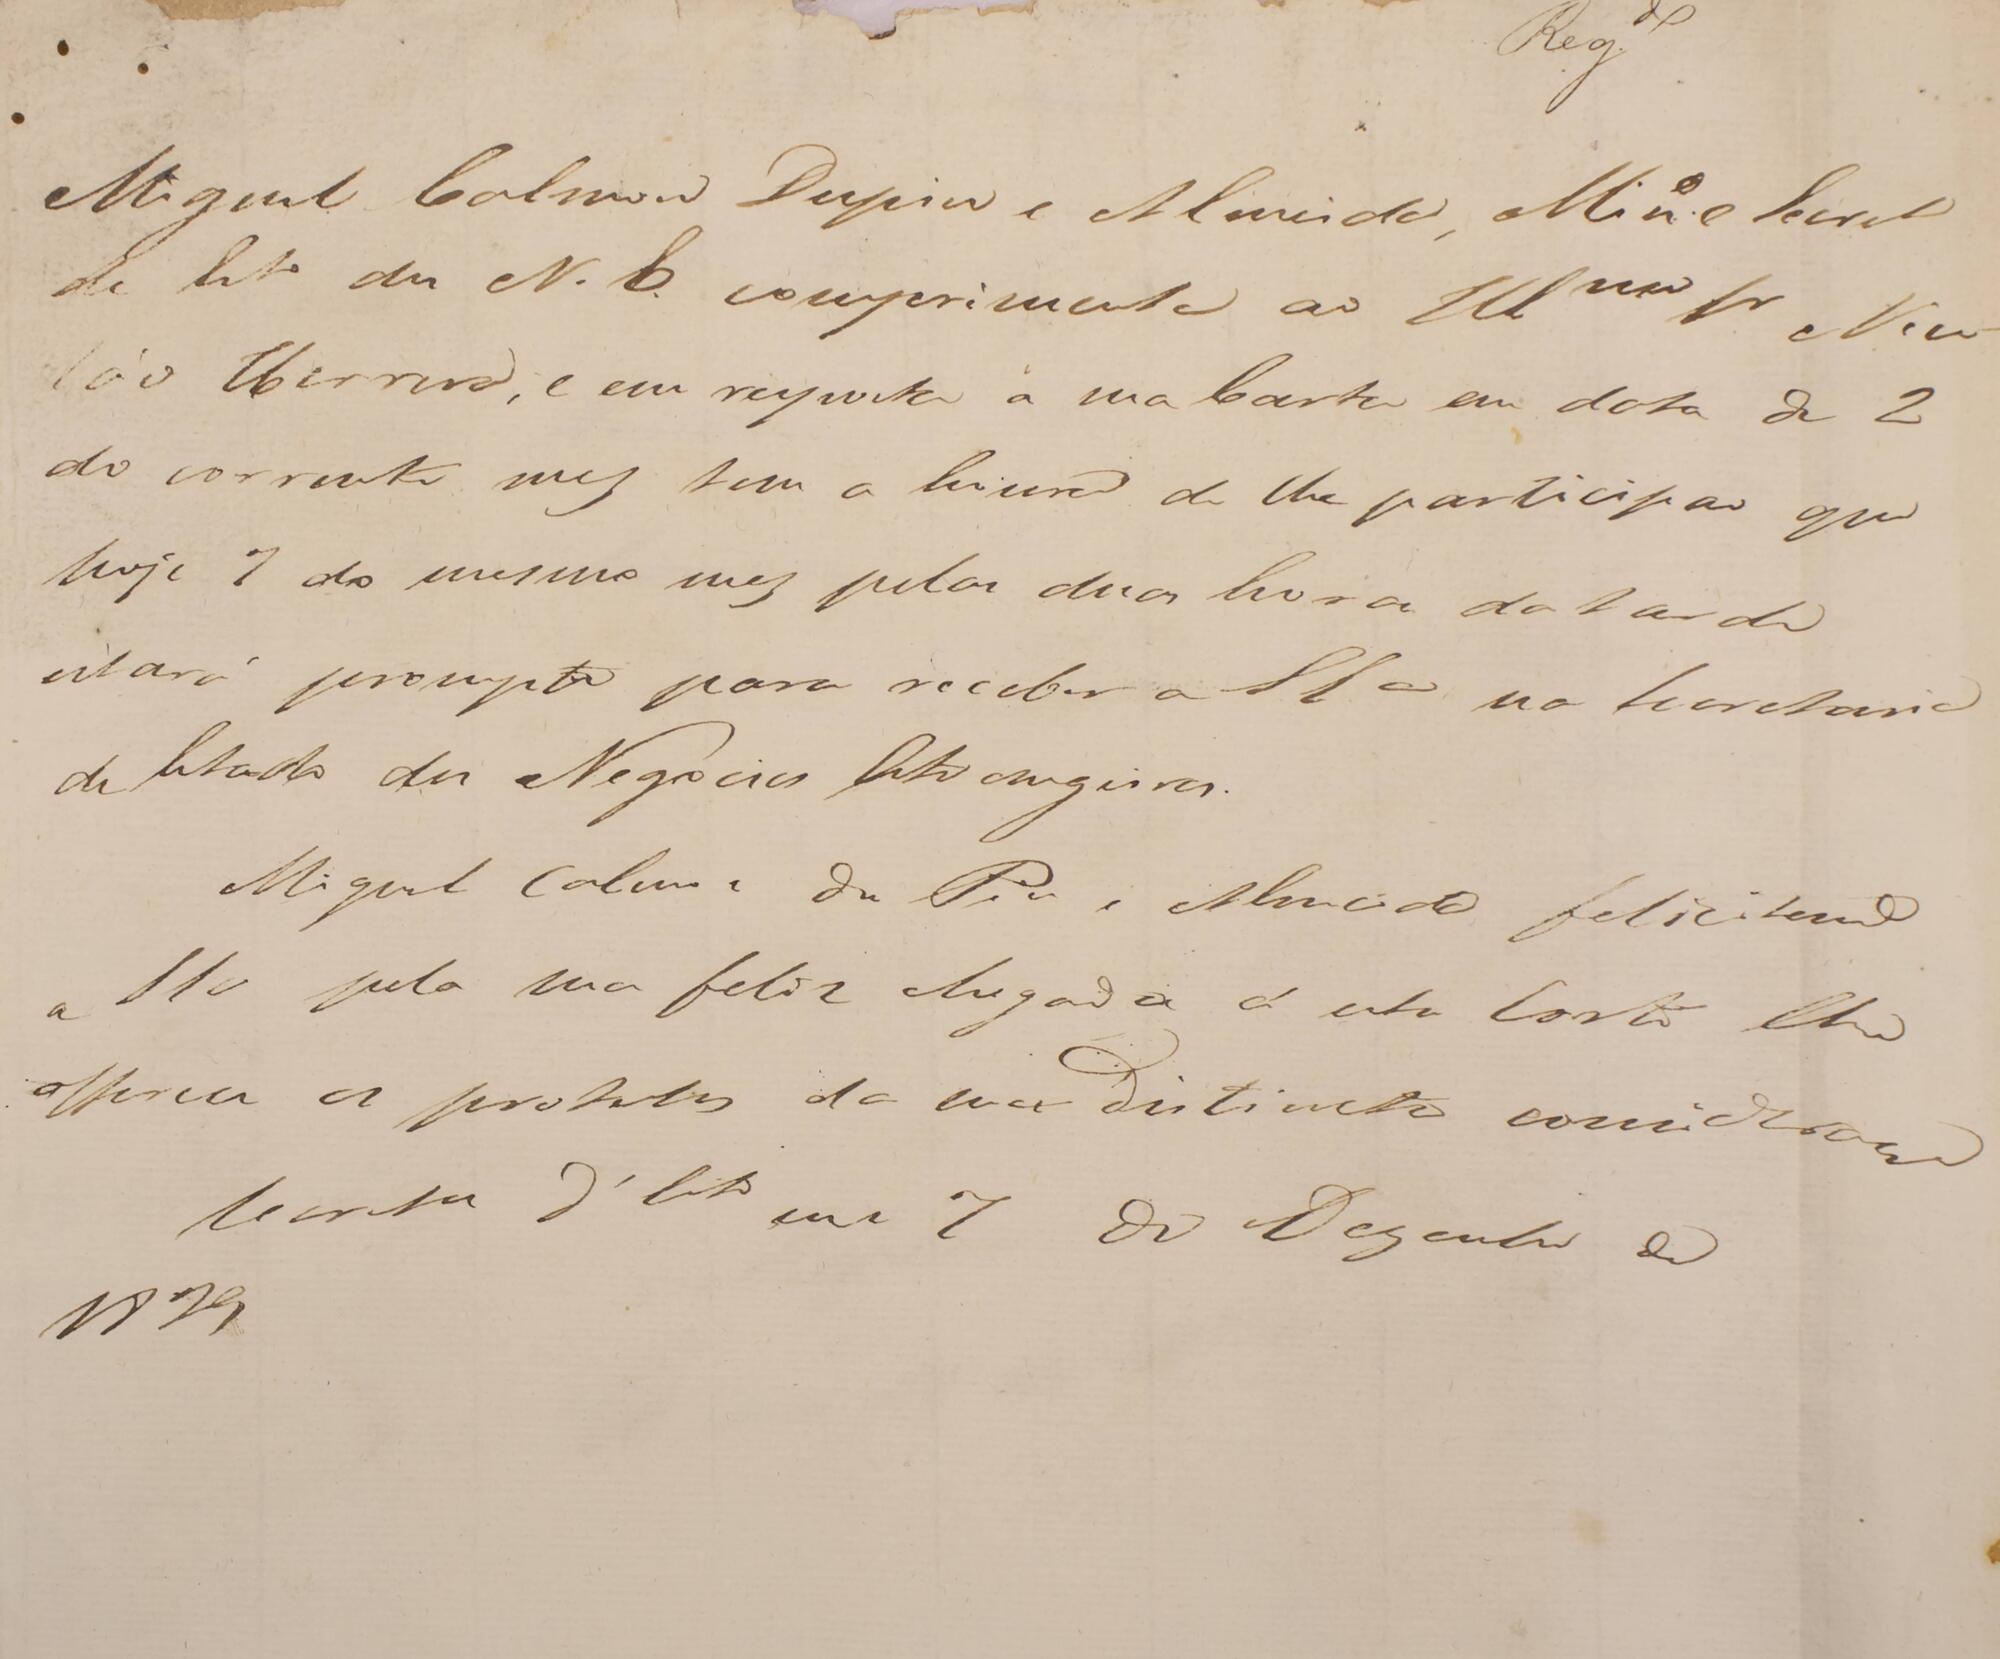 Reg.do
Miguel Calmon Dupin e Almeida, Min.o e Secret
de Est.o dos N. E. comprimenta ao Ill.mo Sr. Nico
láo Herrera, e em resposta á sua Carta em data de 2
do corrente mez tem a honra de lhe participar que
hoje 7 do mesmo mez pelas duas horas da tarde
estará prompto para receber a S. S.a na Secretaria
de Estado dos Negocios Estrangeiros.
Miguel Calmon du Pin e Almeida felicitando
a S. S.a pela sua feliz chegada á esta Corte lhe
offerece os protestos da sua distincta consideração
Secreta d'Est.o em 7 de Dezembro de